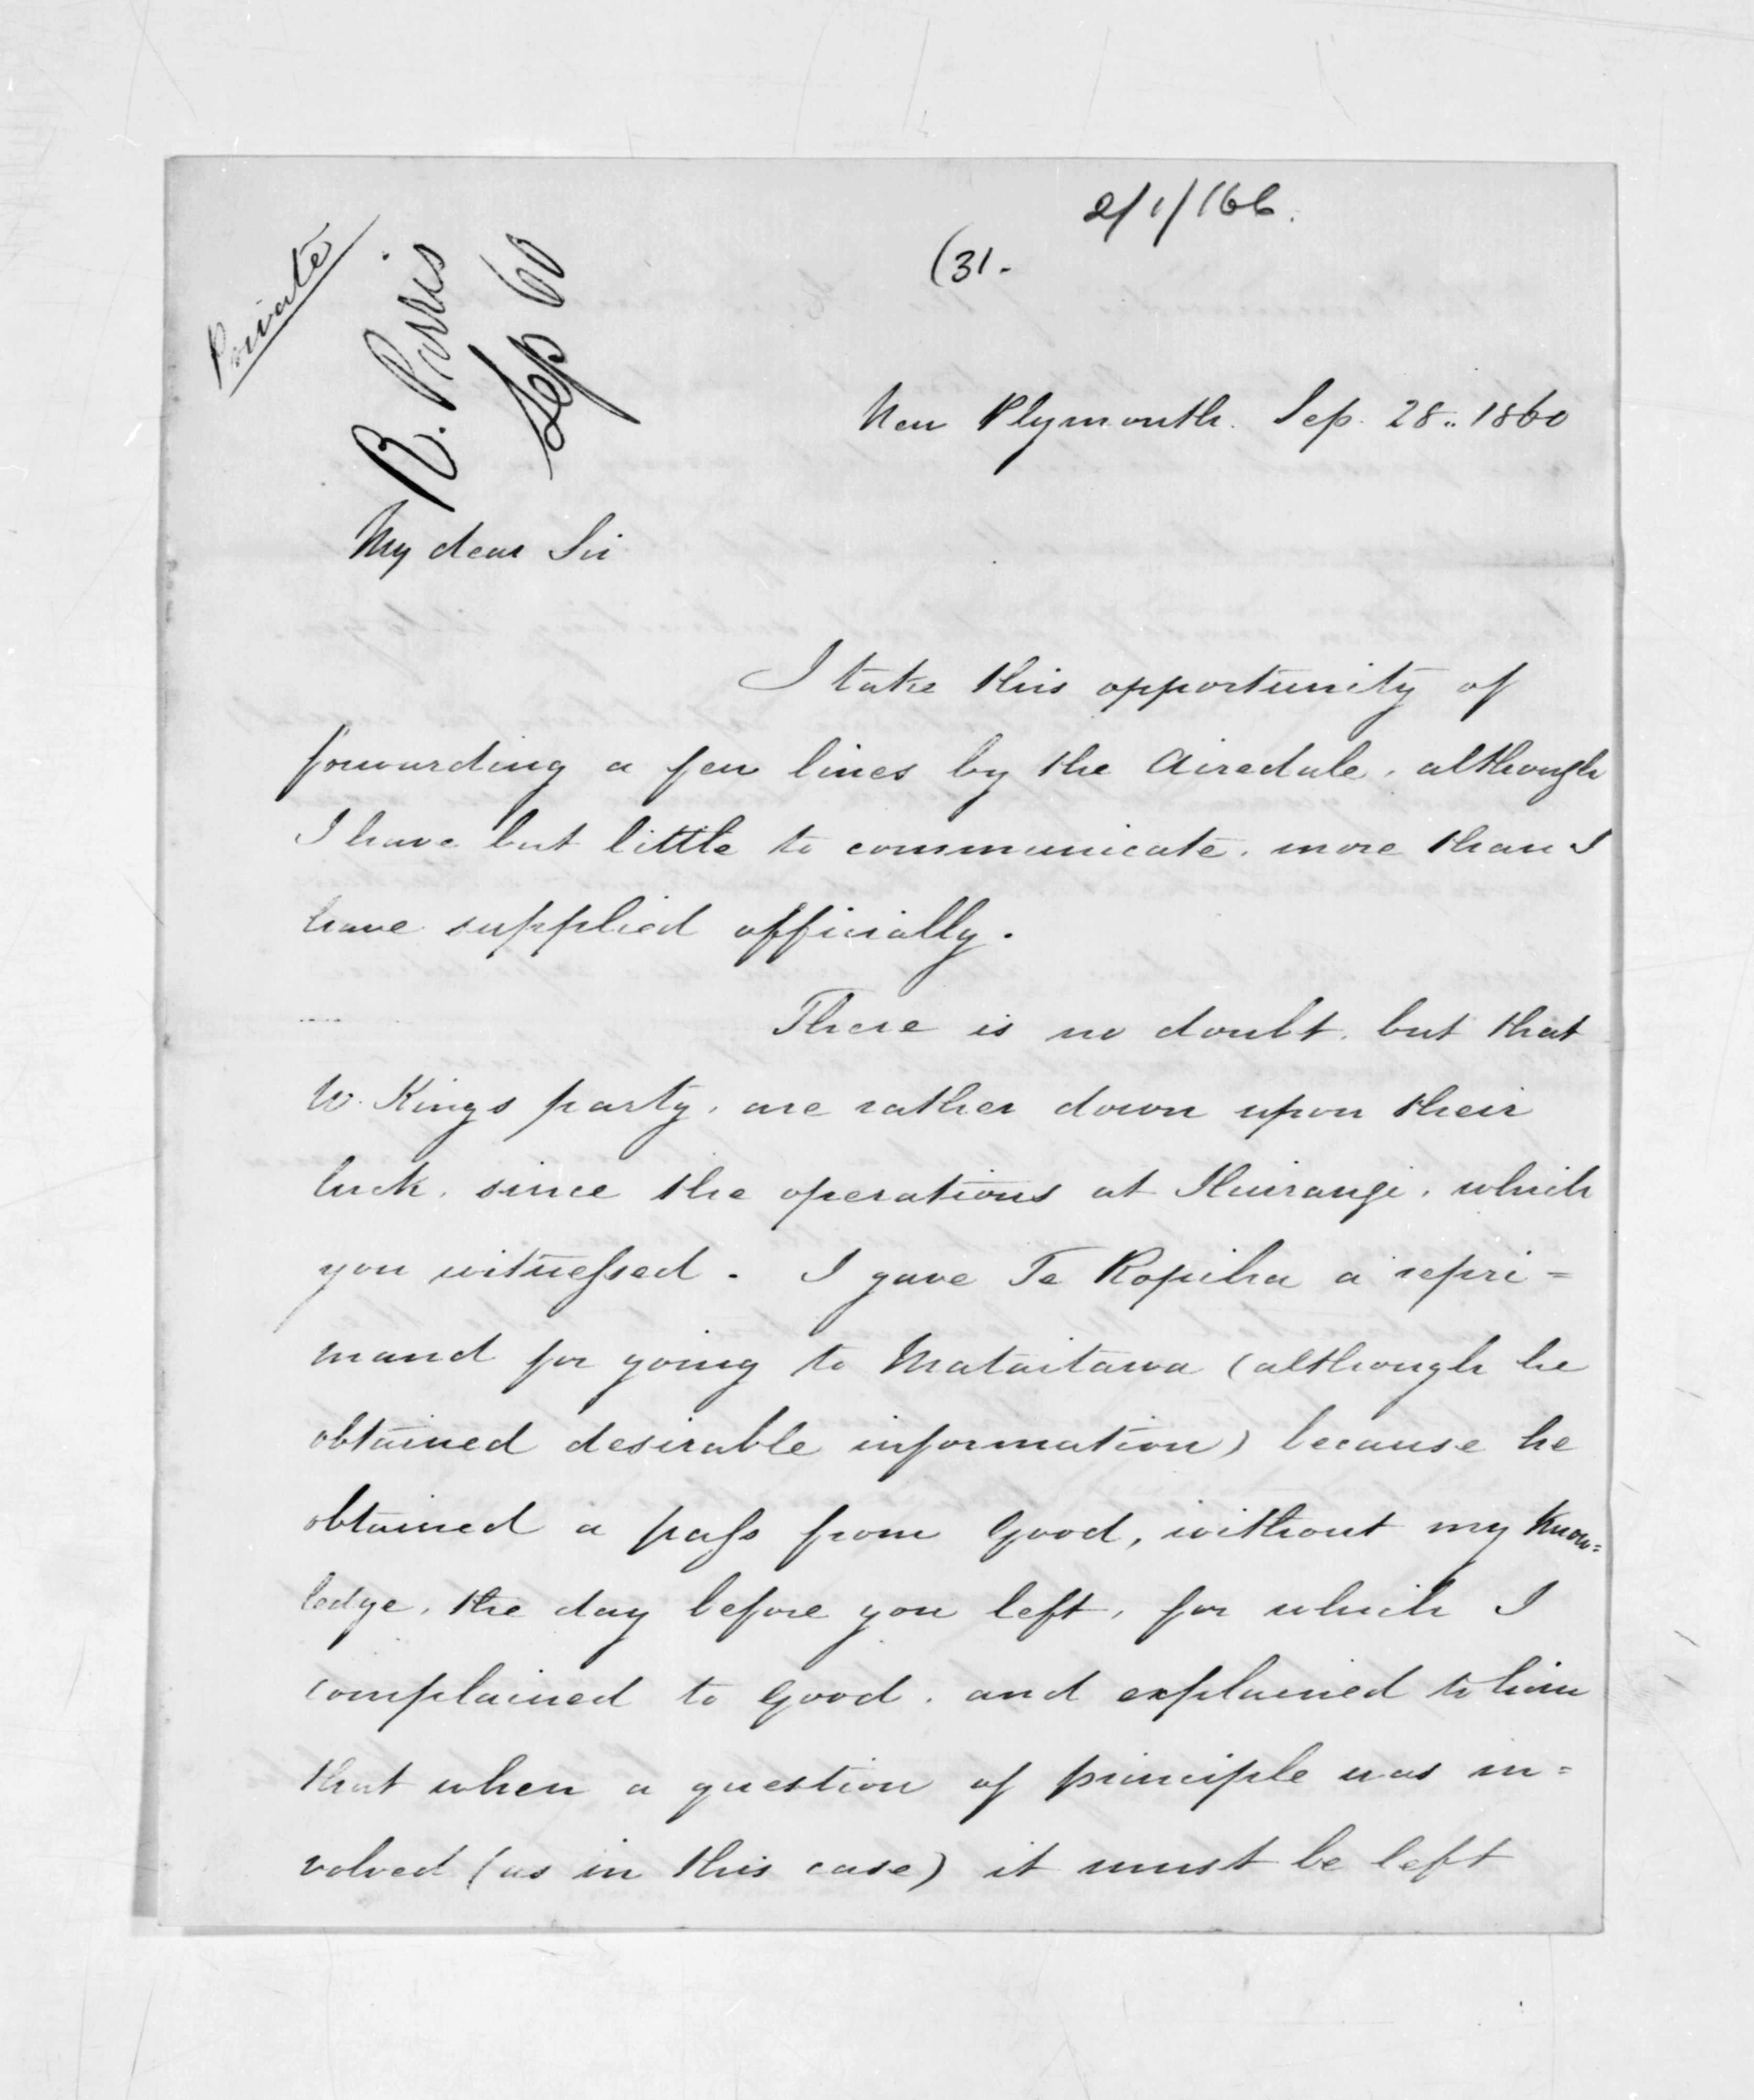 2/1/166.
(31.
Private
R. Parris
Sep 60
New Plymouth. Sep. 28.. 1860
My dear Sir
I take this opportunity of
forwarding a few lines by the Airedale, although
I have but little to communicate, more than I
have supplied officially.
There is no doubt, but that
W. Kings party, are rather down upon their
luck, since the operations at Huirangi, which
you witnessed. I gave Te Ropiha a repri=
mand for going to Mataitawa (although he
obtained desirable information) because he
obtained a pass from Good, without my know=
ledge, the day before you left, for which I
complained to Good, and explained to him
that when a question of principle was in=
volved (as in this case) it must be left